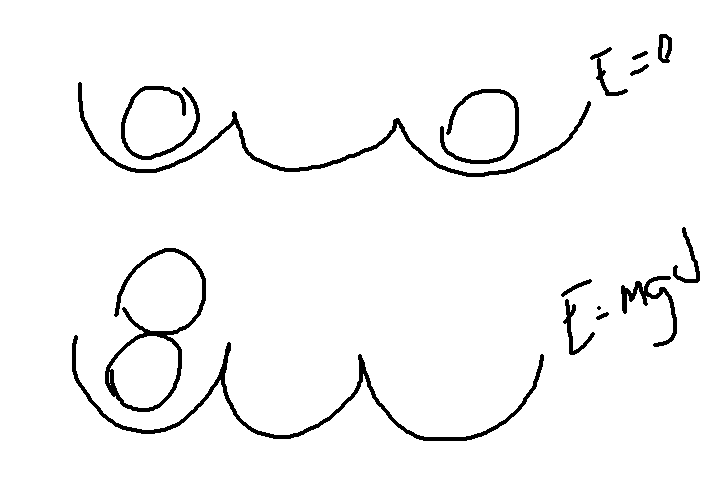 E=0
E=mgd